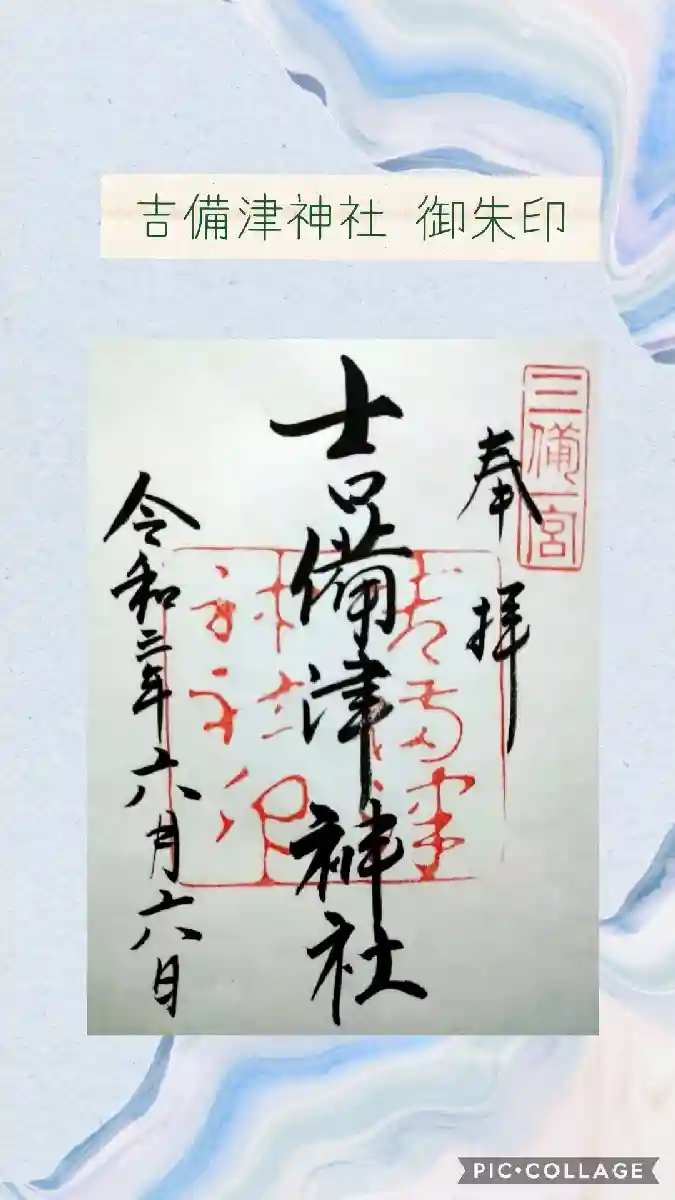 吉備津神社 御朱印
三備一宮
奉拝
吉備津神社
令和三年六月六日
PIC•COLLAGE